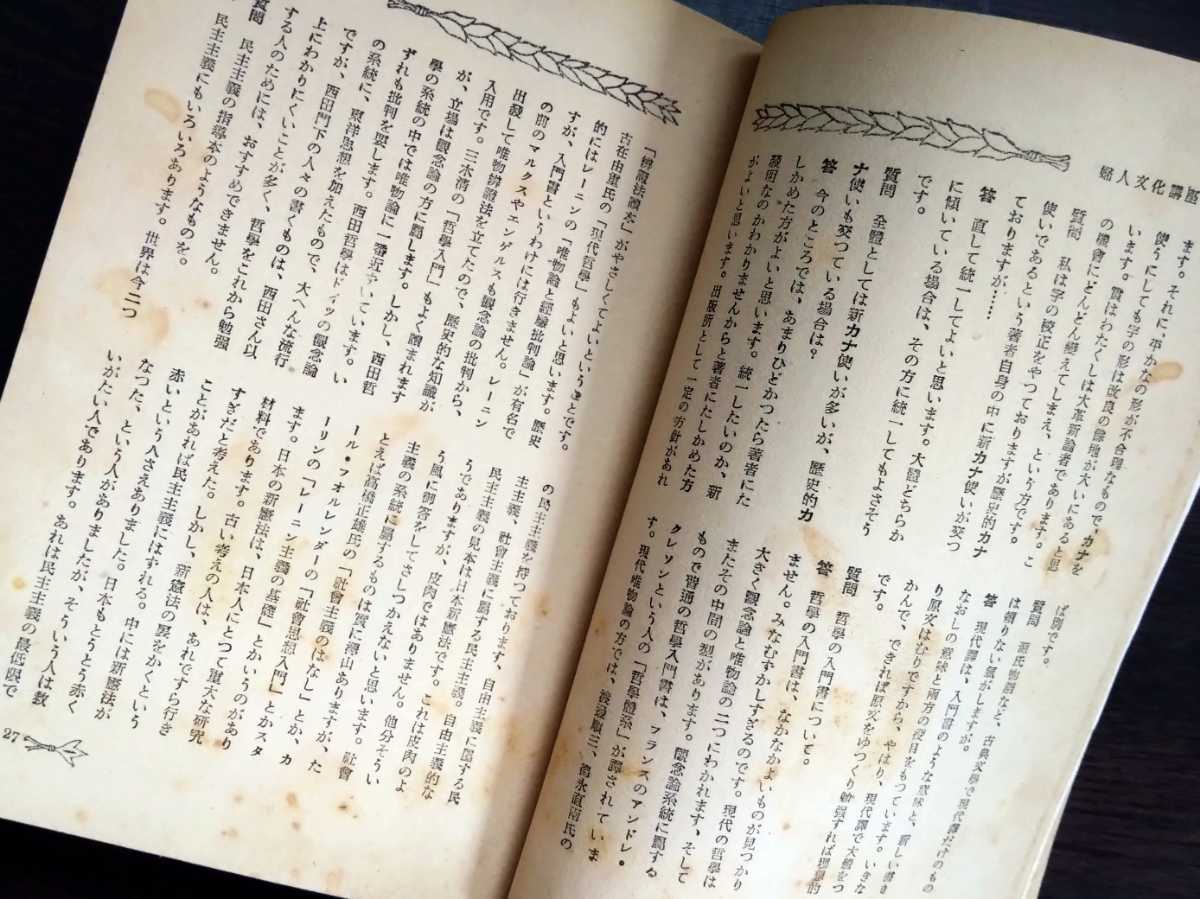 婦人文化講座
ます。それに、平かなの形が不合理なもので、カナを
使うにしても字の形は改良の餘地が大いにあると思
います。實はわたくしは大革新論者であります。こ
の機會にどんどん變えてしまえ、という方です。
質問 私は字の校正をやっておりますが歷史的カナ
使いであるという著者自身の中に新カナ使いが交つ
ておりますが……
答 直して統一してよいと思います。大體どちらか
に傾いている場合は、その方に統一してもよさそう
です。
質問 全體としては新カナ使いが多いが、歷史的カ
ナ使いも交つている場合は?
答 今のところでは、あまりひどかつたら著者にた
しかめた方がよいと思います。統一したいのか、新
發明なのかわかりませんからと著者にたしかめた方
がよいと思います。出版所として一定の方針があれ
ば別です。
質問 源氏物語など、古典文學で現代譯だけのもの
は頼りない氣がしますが。
答 現代譯は、入門書のような意味と、新しい書き
なおしの意味と兩方の役目をもつています。いきな
り原文はむりですから、やはり、現代譯で大體をつ
かんで、できれば原文をゆつくり勉强すれば理想的
です。
質問 哲學の入門書について。
答 哲學の入門書は、なかなかよいものが見つかり
ません。みなむずかしすぎるのです。現代の哲學は
大きく觀念論と唯物論の二つにわかれます、そして
またその中間の型があります。觀念論系統に屬する
もので普通の哲學入門書は、フランスのアンドレ・
クレソンという人の「哲學體系」が譯されていま
す。現代唯物論の方では、渡邊順三、德永直兩氏の
「辯證法讀本」がやさしくてよいということです。
古在由重氏の「現代哲學」もよいと思います。歷史
的にはレーニンの「唯物論と經驗批判論」が有名で
すが、入門書というわけには行きません。レーニン
の前のマルクスやエンゲルスも觀念論の批判から、
出發して唯物辨證法を立てたので、歷史的な知識が
入用です。三木淸の「哲學入門」もよく讀まれます
が、立場は觀念論の方に屬します。しかし、西田哲
學の系統の中では唯物論に一番近ずいています。い
ずれも批判を要します。西田哲學はドイツの觀念論
の系統に、東洋思想を加えたもので、大へんな流行
ですが、西田門下の人々の書くものは、西田さん以
上にわかりにくいことが多く、哲學をこれから勉强
する人のためには、おすすめできません。
質問 民主主義の指導本のようなものを。
民主主義にもいろいろあります。世界は今二つ
の民主主義を持つております、自由主義に屬する民
主主義、社會主義に屬する民主主義。自由主義的な
民主主義の見本は日本新憲法です。これは皮肉のよ
うでありますが、皮肉ではありません。他分そうい
う風に御答をしてさしつかえないと思います。社會
主義の系統に屬するものは實に澤山ありますが、た
とえば高橋正雄氏の「社會主義のはなし」とか、カ
ール・フオルレンダーの「社會思想入門」とかスタ
ーリンの「レーニン主義の基礎」とかいうのがあり
ます。日本の新憲法は、日本人にとつて重大な硏究
材料であります。古い考えの人は、あれですら行き
すぎだと考えた。しかし、新憲法の裏をかくという
ことがあれば民主主義にはずれる。中には新憲法が
赤いという人さえありました。日本もとうとう赤く
なつた、という人がありましたが、そういう人は救
いがたい人であります。あれは民主主義の最低限で
27